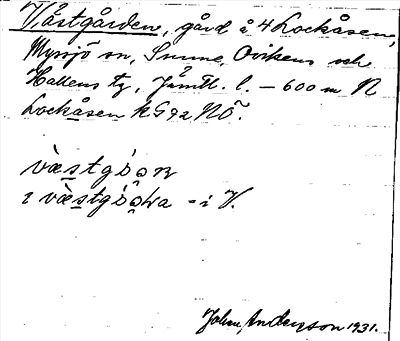 Västgården, gård å 4 Lockåsen,
Myssjö sn, Sunne, Ovikens och
Hallens tg, Jämtl. l. – 600 m N
Lockåsen kG 92 NÖ.
i V.
John Anderson 1931.